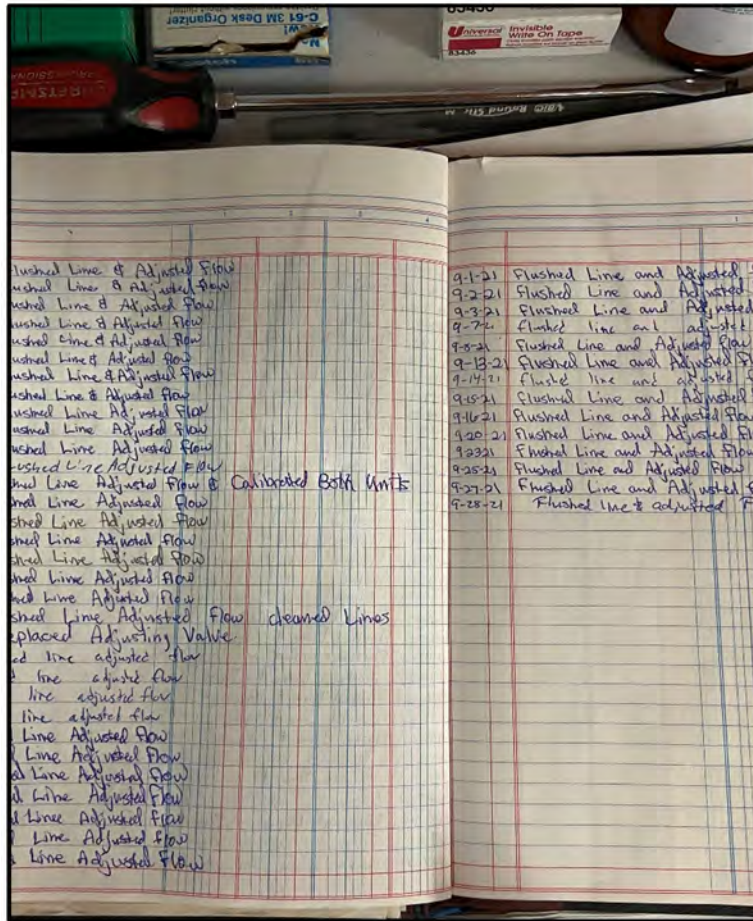 C-61 3M Desk Organizer
New!
83436
Universal Invisible
Write On Tape
83436
CRAFTSMAN
PROFESSIONAL
BIC Round Stic M
1 2 3 4
lushed Line & Adjusted Flow
ushed Line & Adjusted flow
ushed Line & Adjusted Flow
ushed Line & Adjusted Flow
ushed Line & Adjusted flow
ushed Line & Adjusted flow
ushed Line & Adjusted Flow
ushed Line & Adjusted Flow
ushed Line Adjusted Flow
ushed Line Adjusted Flow
ushed Line Adjusted Flow
ushed Line Adjusted Flow
hed Line Adjusted Flow & Calibrated Both Units
hed Line Adjusted Flow
shed Line Adjusted flow
shed Line Adjusted flow
shed Line Adjusted Flow
hed Line Adjusted Flow
hed Line Adjusted Flow
shed Line Adjusted flow cleaned Lines
eplaced Adjusting Valve
ed line adjusted flow
line adjusted flow
line adjusted flow
line adjusted flow
Line Adjusted Flow
Line Adjusted Flow
d Line Adjusted Flow
d Line Adjusted Flow
d Line Adjusted Flow
Line Adjusted Flow
Line Adjusted Flow
1
9-1-21 Flushed Line and Adjusted
9-2-21 Flushed Line and Adjusted
9-3-21 Flushed Line and Adjusted
9-7-21 flushed line and adjusted
9-8-21 Flushed Line and Adjusted flow
9-13-21 Flushed Line and Adjusted fl
9-14-21 flushed line and adjusted f
9-15-21 Flushed Line and Adjusted
9-16-21 Flushed Line and Adjusted flow
9-20-21 Flushed Line and Adjusted Flo
Flushed Line and Adjusted Flow
9-25-21 Flushed Line and Adjusted Flow
9-27-21 Flushed Line and Adjusted f
9-28-21 Flushed line & adjusted F